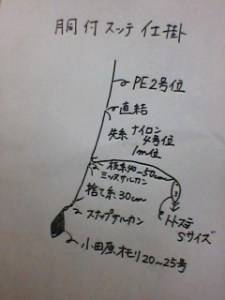 胴付スッテ仕掛
PE2号位
直結
先糸 ナイロン
4号位
1m位
枝糸40〜50cm
ミツマタサルカン
捨て糸30cm
スナップサルカン
小田原オモリ20〜25号
Sサイズ